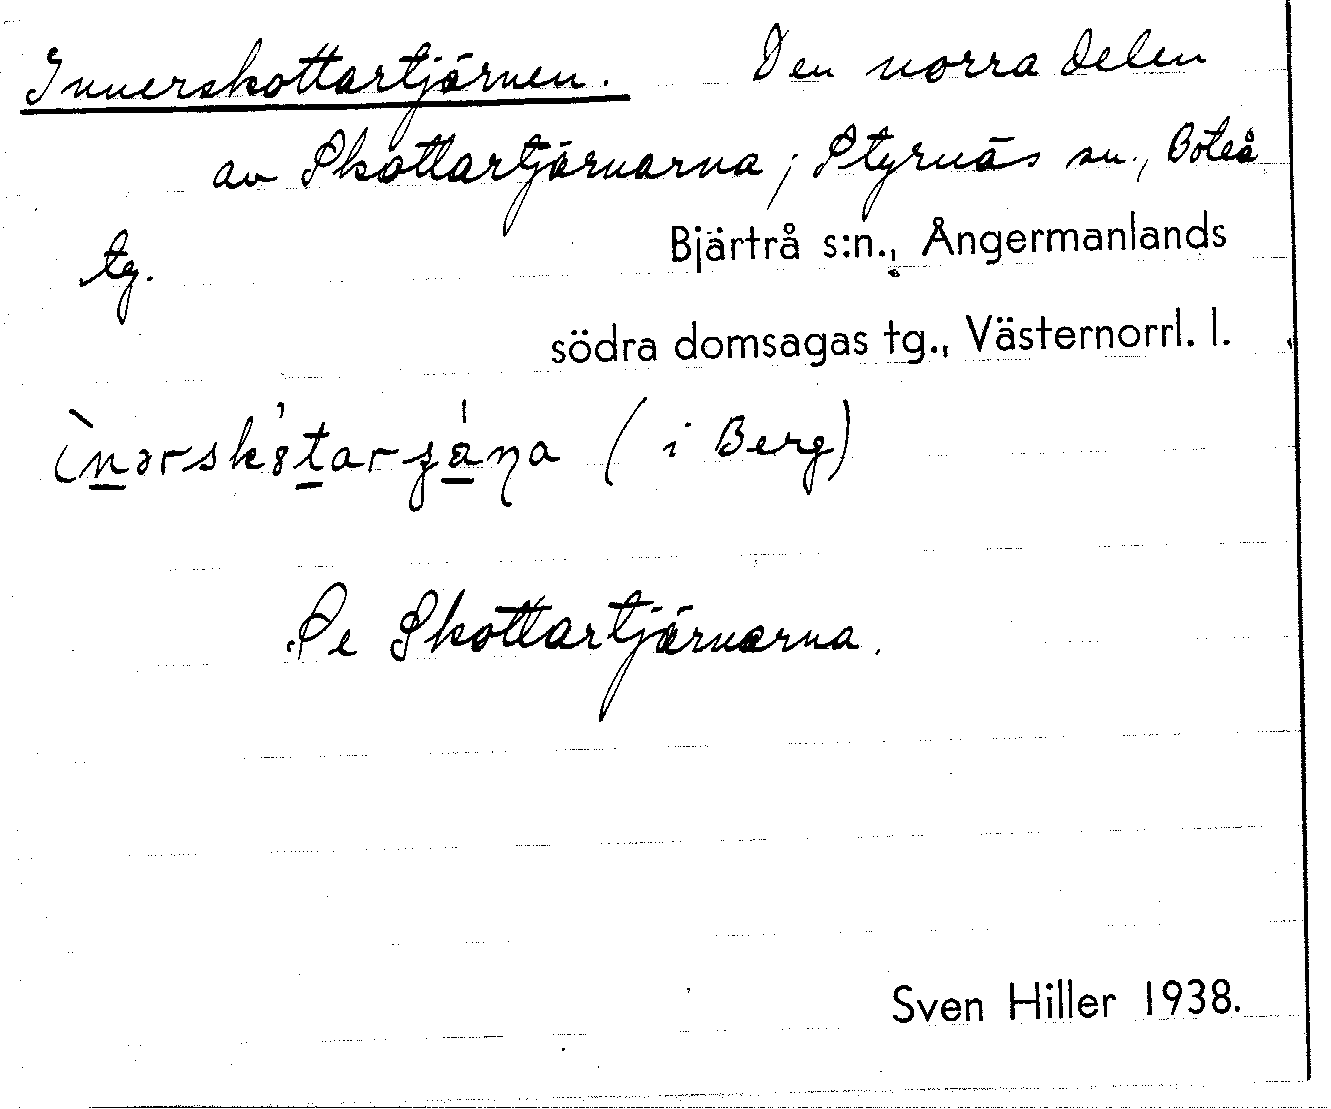 Innerskottartjärnen. Den norra delen
av Skottartjärnarna; Styrnäs sn., Boteå
tg.
Bjärtrå s:n., Ångermanlands
södra domsagas tg., Västernorrl. l.
(i Berg)
Se Skottartjärnarna.
Sven Hiller 1938.